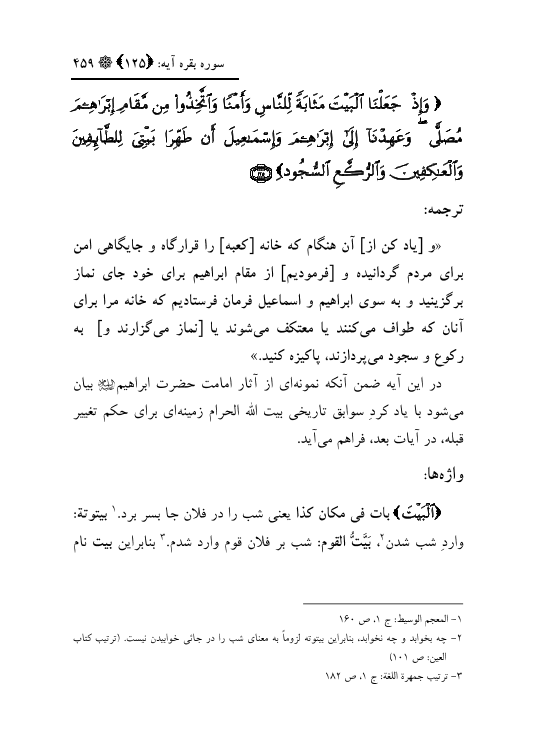 سوره بقره آیه: ﴿۱۲۵﴾ ۴۵۹
﴿ وَإِذْ جَعَلْنَا ٱلْبَيْتَ مَثَابَةً لِّلنَّاسِ وَأَمْنًا وَٱتَّخِذُوا۟ مِن مَّقَامِ إِبْرَٰهِـۧمَ
مُصَلًّى ۖ وَعَهِدْنَآ إِلَىٰٓ إِبْرَٰهِـۧمَ وَإِسْمَٰعِيلَ أَن طَهِّرَا بَيْتِىَ لِلطَّآئِفِينَ
وَٱلْعَٰكِفِينَ وَٱلرُّكَّعِ ٱلسُّجُودِ﴾ ۱۲۵
ترجمه:
«و [یاد کن از] آن هنگام که خانه [کعبه] را قرارگاه و جایگاهی امن
برای مردم گردانیده و [فرمودیم] از مقام ابراهیم برای خود جای نماز
برگزینید و به سوی ابراهیم و اسماعیل فرمان فرستادیم که خانه مرا برای
آنان که طواف می‌کنند یا معتکف می‌شوند یا [نماز می‌گزارند و] به
رکوع و سجود می‌پردازند، پاکیزه کنید.»
در این آیه ضمن آنکه نمونه‌ای از آثار امامت حضرت ابراهیم بیان
می‌شود با یاد کردِ سوابق تاریخی بیت الله الحرام زمینه‌ای برای حکم تغییر
قبله، در آیات بعد، فراهم می‌آید.
واژه‌ها:
﴿ٱلْبَيْتَ﴾ بات فی مکان کذا یعنی شب را در فلان جا بسر برد.۱ بیتوتة:
واردِ شب شدن۲، بَيَّتُّ القوم: شب بر فلان قوم وارد شدم.۳ بنابراین بیت نام
۱- المعجم الوسیط: ج ۱، ص ۱۶۰
۲- چه بخوابد و چه نخوابد، بنابراین بیتوته لزوماً به معنای شب را در جائی خوابیدن نیست. (ترتیب کتاب
العین: ص ۱۰۱)
۳- ترتیب جمهرة اللغة: ج ۱، ص ۱۸۲